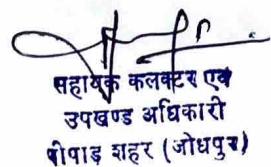 सहायक कलक्टर एवं
उपखण्ड अधिकारी
पीपाड़ शहर (जोधपुर)